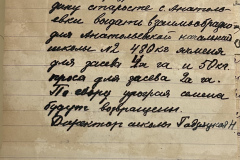 дану старосте с. Анатоль-
евки выдать взаимообразно
для Анатольевской начальной
школы №2 480 кг ячменя
для засева 4х га и 50 кг
проса для засева 2х га.
По сборе урожая семена
будут возвращены.
Директор школы